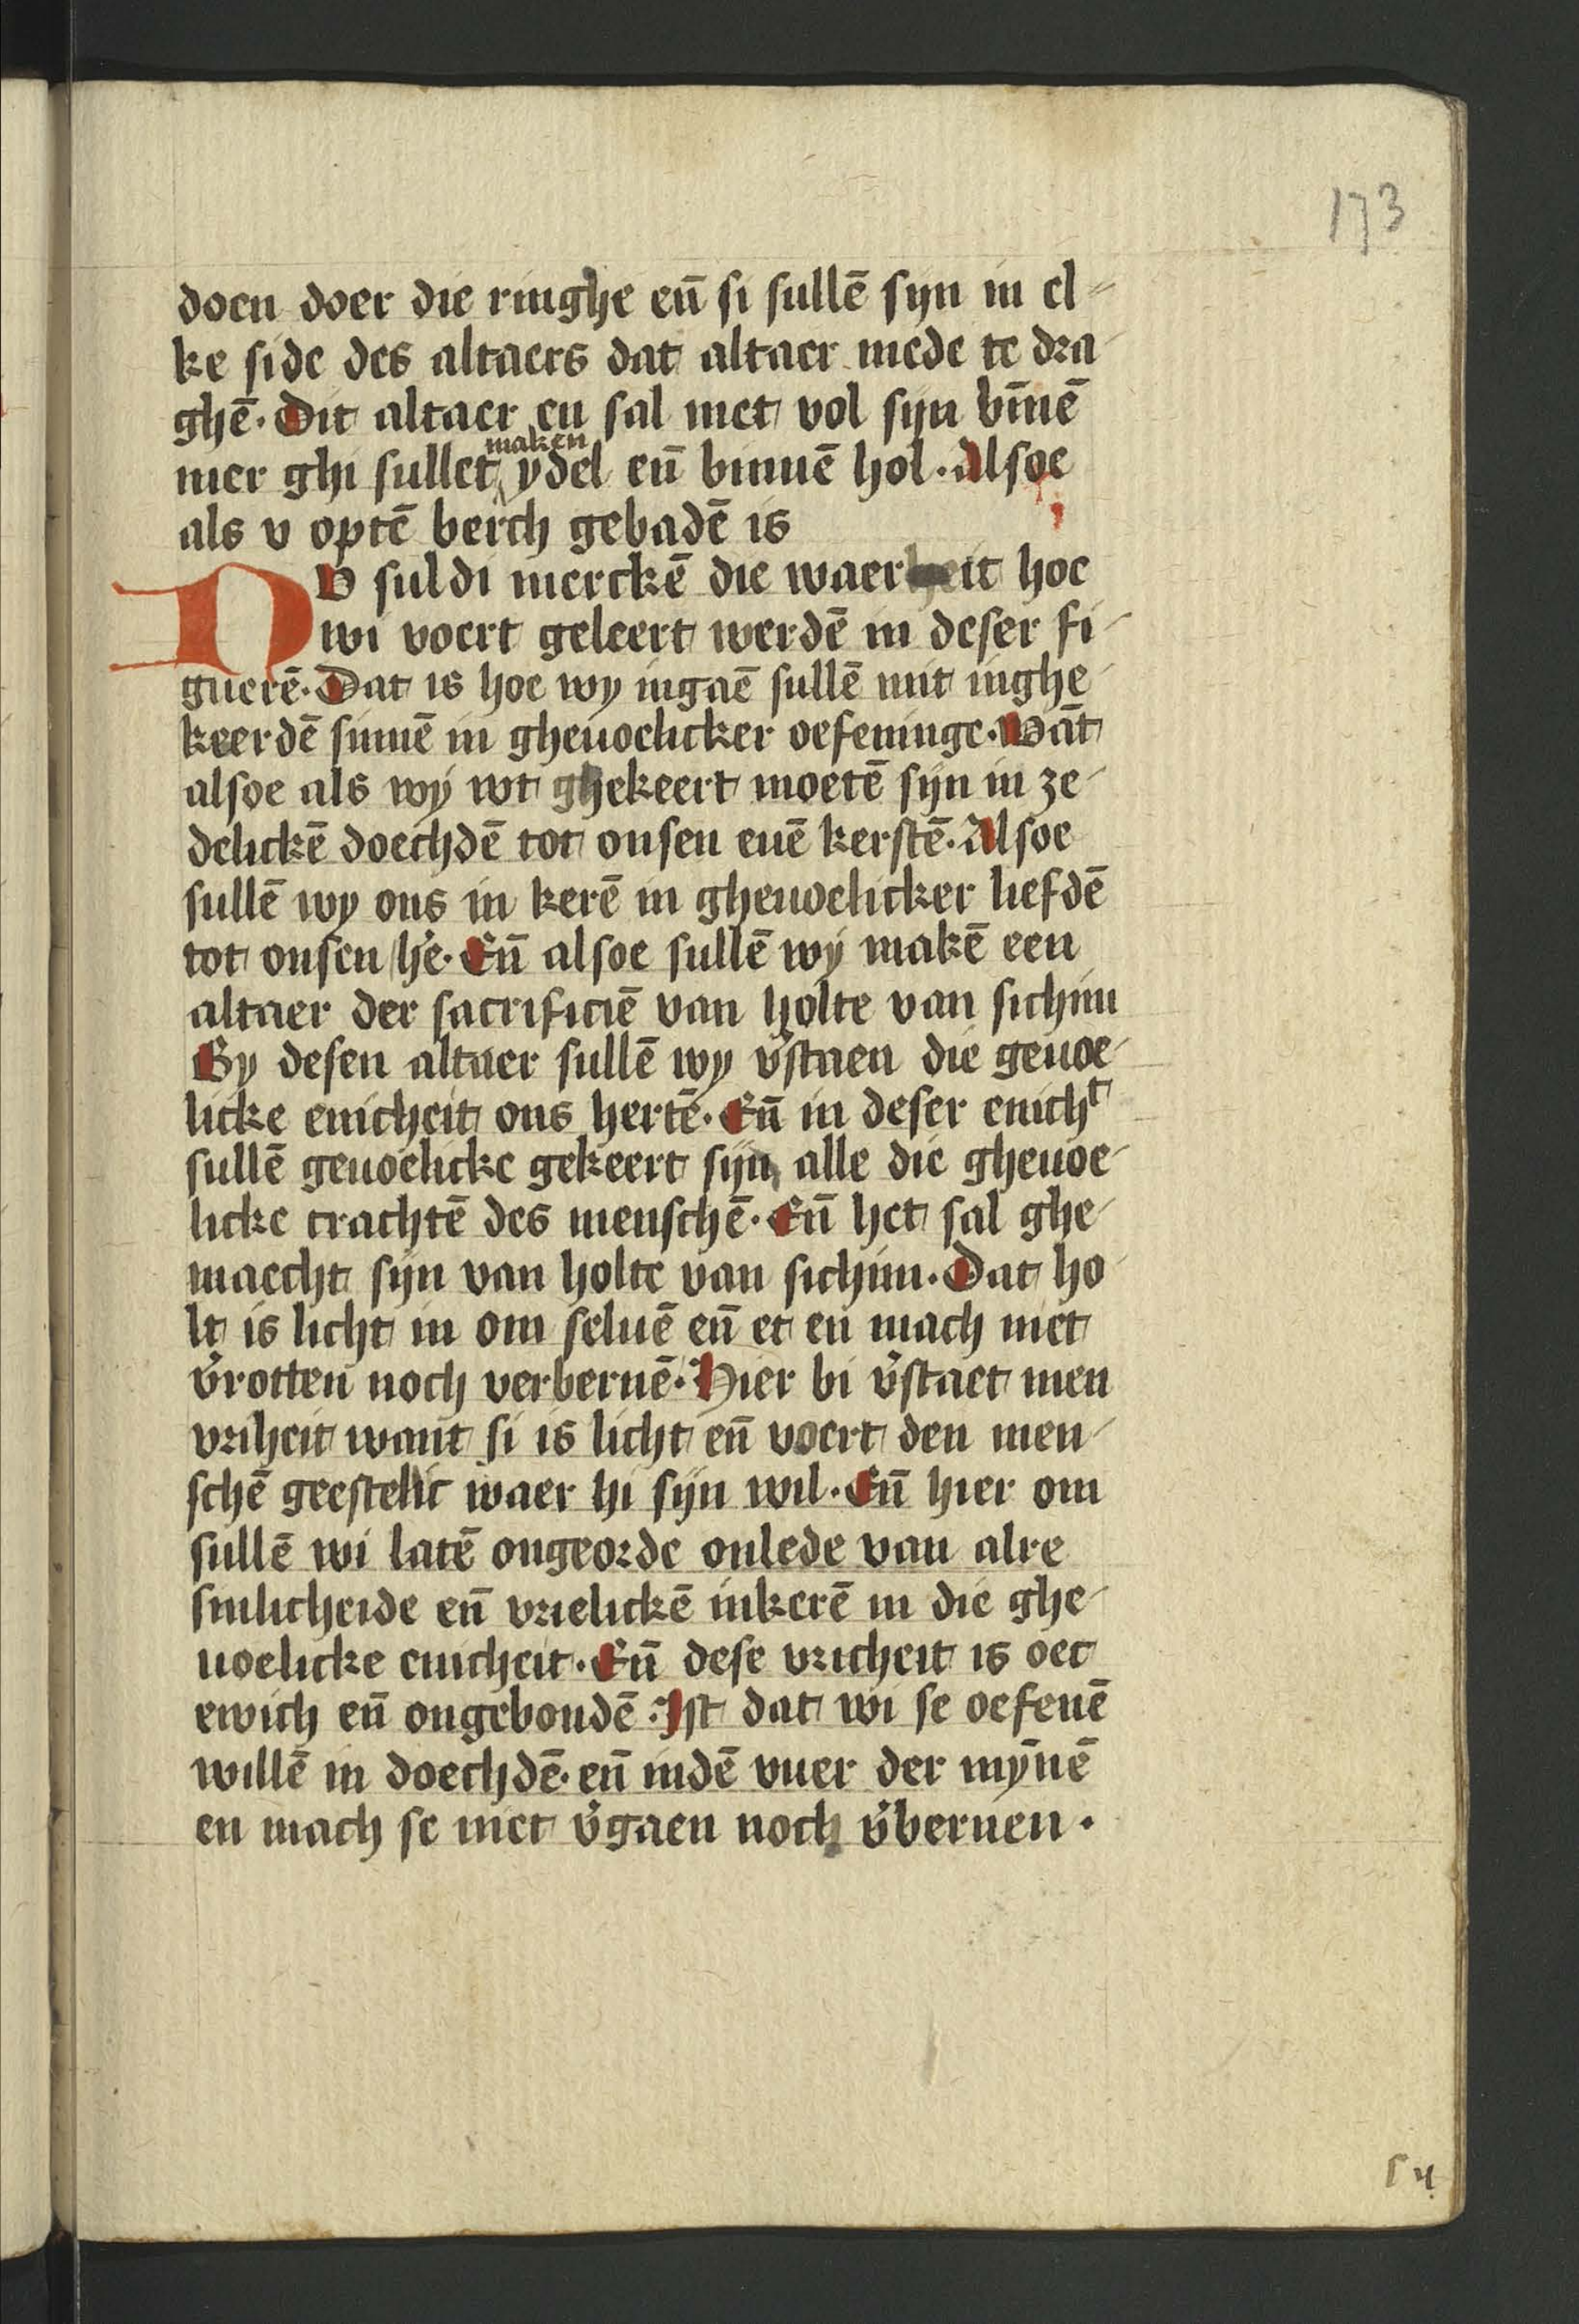 173
doen doer die ringhe eñ si sullē syn in el-
ke side des altaers dat altaer mede te dra-
ghē. Dit altaer en sal niet vol syn bīnē
maken
mer ghi sullet ydel eñ binnē hol. Alsoe
als v optē berch gebadē is
NV suldi merckē die waerheit hoe
wi voert geleert werdē in deser fi-
guerē. Dat is hoe wy ingaē sullē mit inghe-
keerdē sinnē in gheuoelicker oefeninge. Wāt
alsoe als wy wt ghekeert moetē syn in ze-
delickē doechdē tot onsen euē kerstē. Alsoe
sullē wy ons in kerē in gheuoelicker liefdē
tot onsen hē. Eñ alsoe sullē wy makē een
altaer der sacrificiē van holte van sichim
By desen altaer sullē wy v̄staen die geuoe-
licke enicheit ons hertē. Eñ in deser enichᵗ
sullē geuoelicke gekeert syn alle die gheuoe-
licke crachtē des menschē. Eñ het sal ghe-
maecht syn van holte van sichim. Dat ho-
lt is licht in om seluē eñ et en mach niet
v̄rotten noch verbernē. Hier bi v̄staet men
vriheit want si is licht eñ voert den men-
schē geestelic waer hi syn wil. Eñ hier om
sullē wi latē ongeorde onlede van alre
sinlicheide eñ vrielickē inkerē in die ghe-
uoelicke enicheit. Eñ dese vricheit is oec
ewich eñ ongebondē. Ist dat wi se oefenē
willē in doechdē. eñ indē vuer der mȳnē
en mach se niet v̄gaen noch v̄bernen.